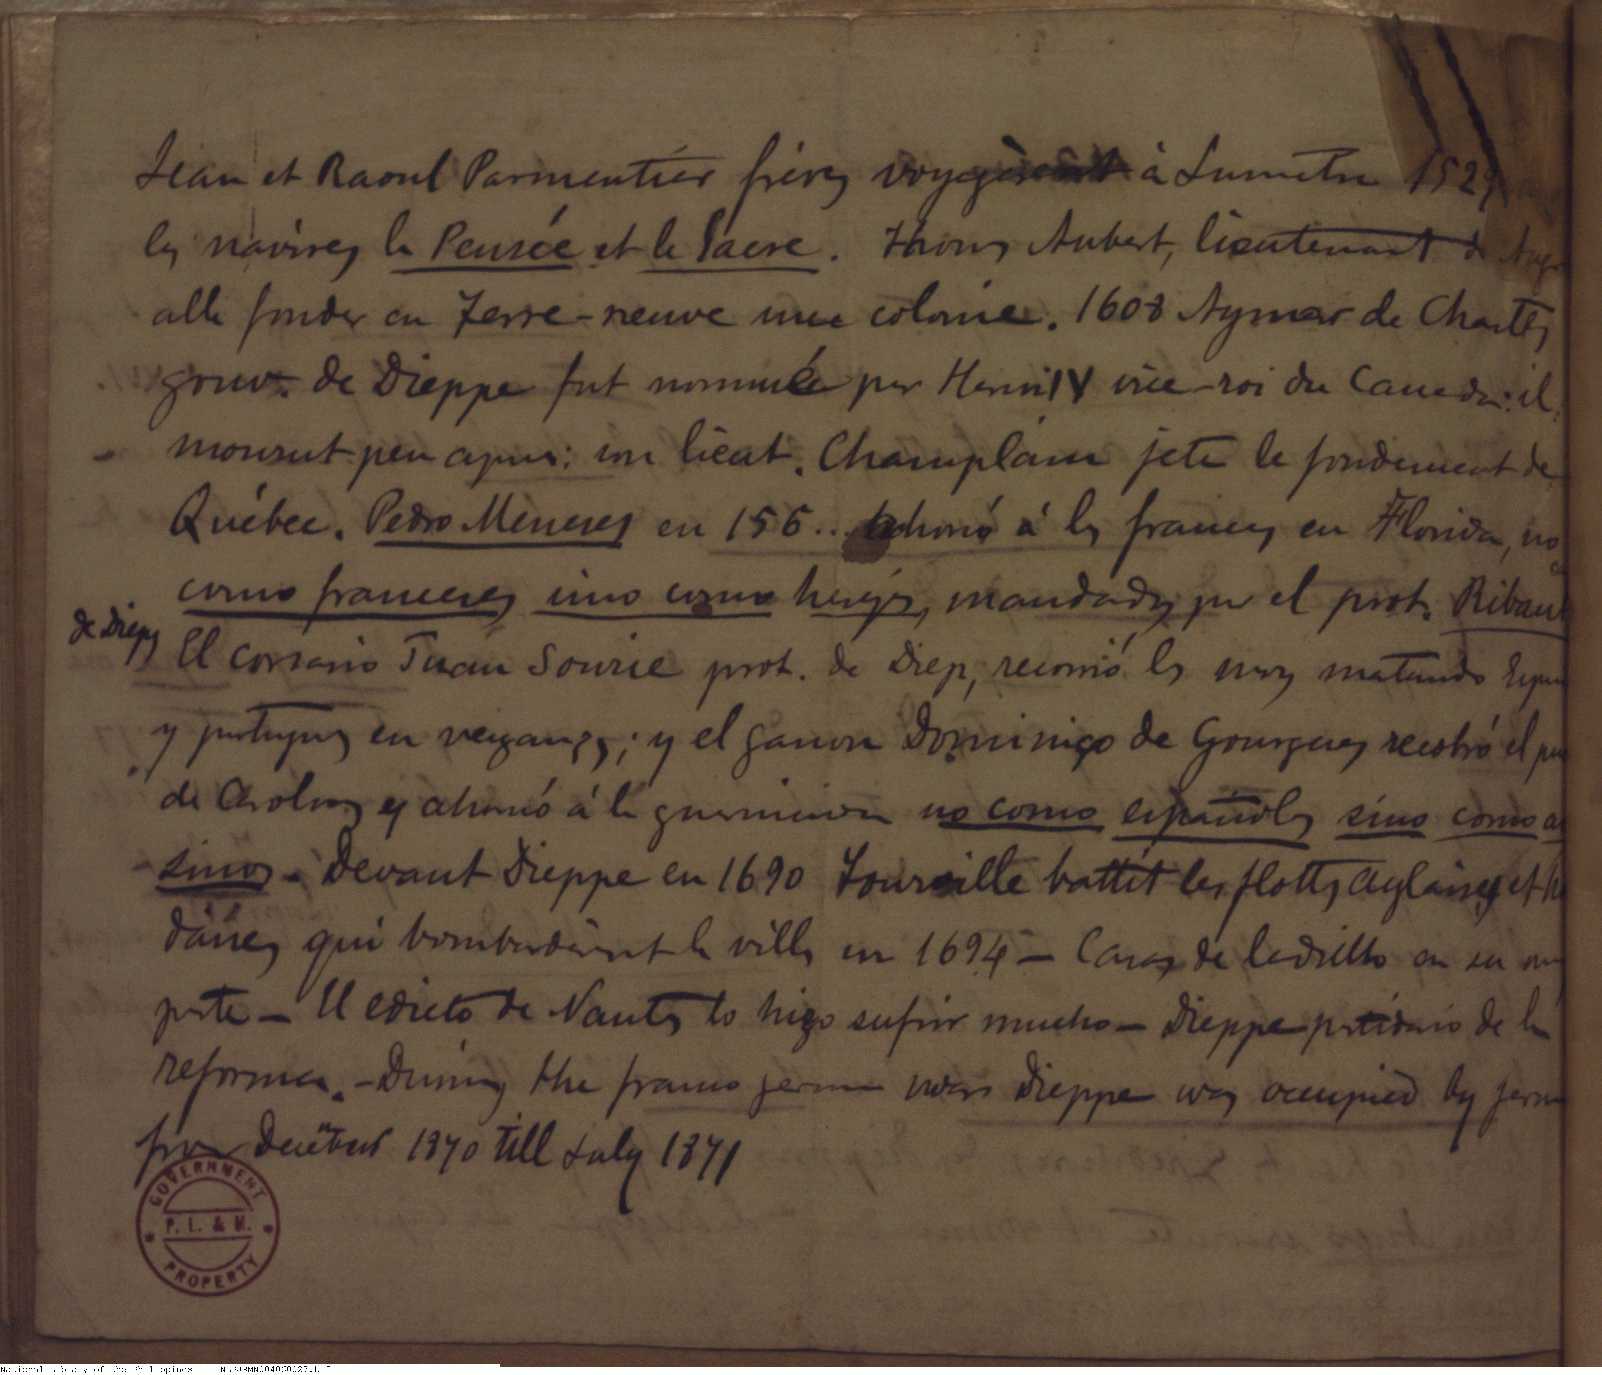 Jean et Raoul Parmentier frères voyagèrent à Sumatra 1529
les navires la Pensée et le Sacre. Thomas Aubert, lieutenant de Ango
alla fonder en Terre-neuve une colonie. 1608 Aymar de Chastes
gouv. de Dieppe fut nommé par Henri IV vice-roi du Canada: il
mourut peu apres: son lieut. Champlain jeta le fondement de
Québec. Pedro Meneses en 156... ahorcó á los franceses en Florida, no
como franceses sino como herejes, mandados por el prot. Ribaut
de Diep
El corsario Juan Sourie prot. de Diep, recorrió los mares matando Espa
y portugueses en venganza; y el gascon Domingo de Gourgues recobró el
de Carolina y ahorcó á la guarnicion no como españoles sino como a
sinos - Devant Dieppe en 1690 Tourville battit les flottes Anglaises et
daises qui bombardèrent la ville en 1694 - Casas de ladrillo en su
parte - El edicto de Nantes lo hizo sufrir mucho - Dieppe partidario de la
reforma. - During the franco german wars Dieppe was occupied by germ
from December 1870 till July 1871
GOVERNMENT
P. L. & M.
PROPERTY
National Library of the Philippines